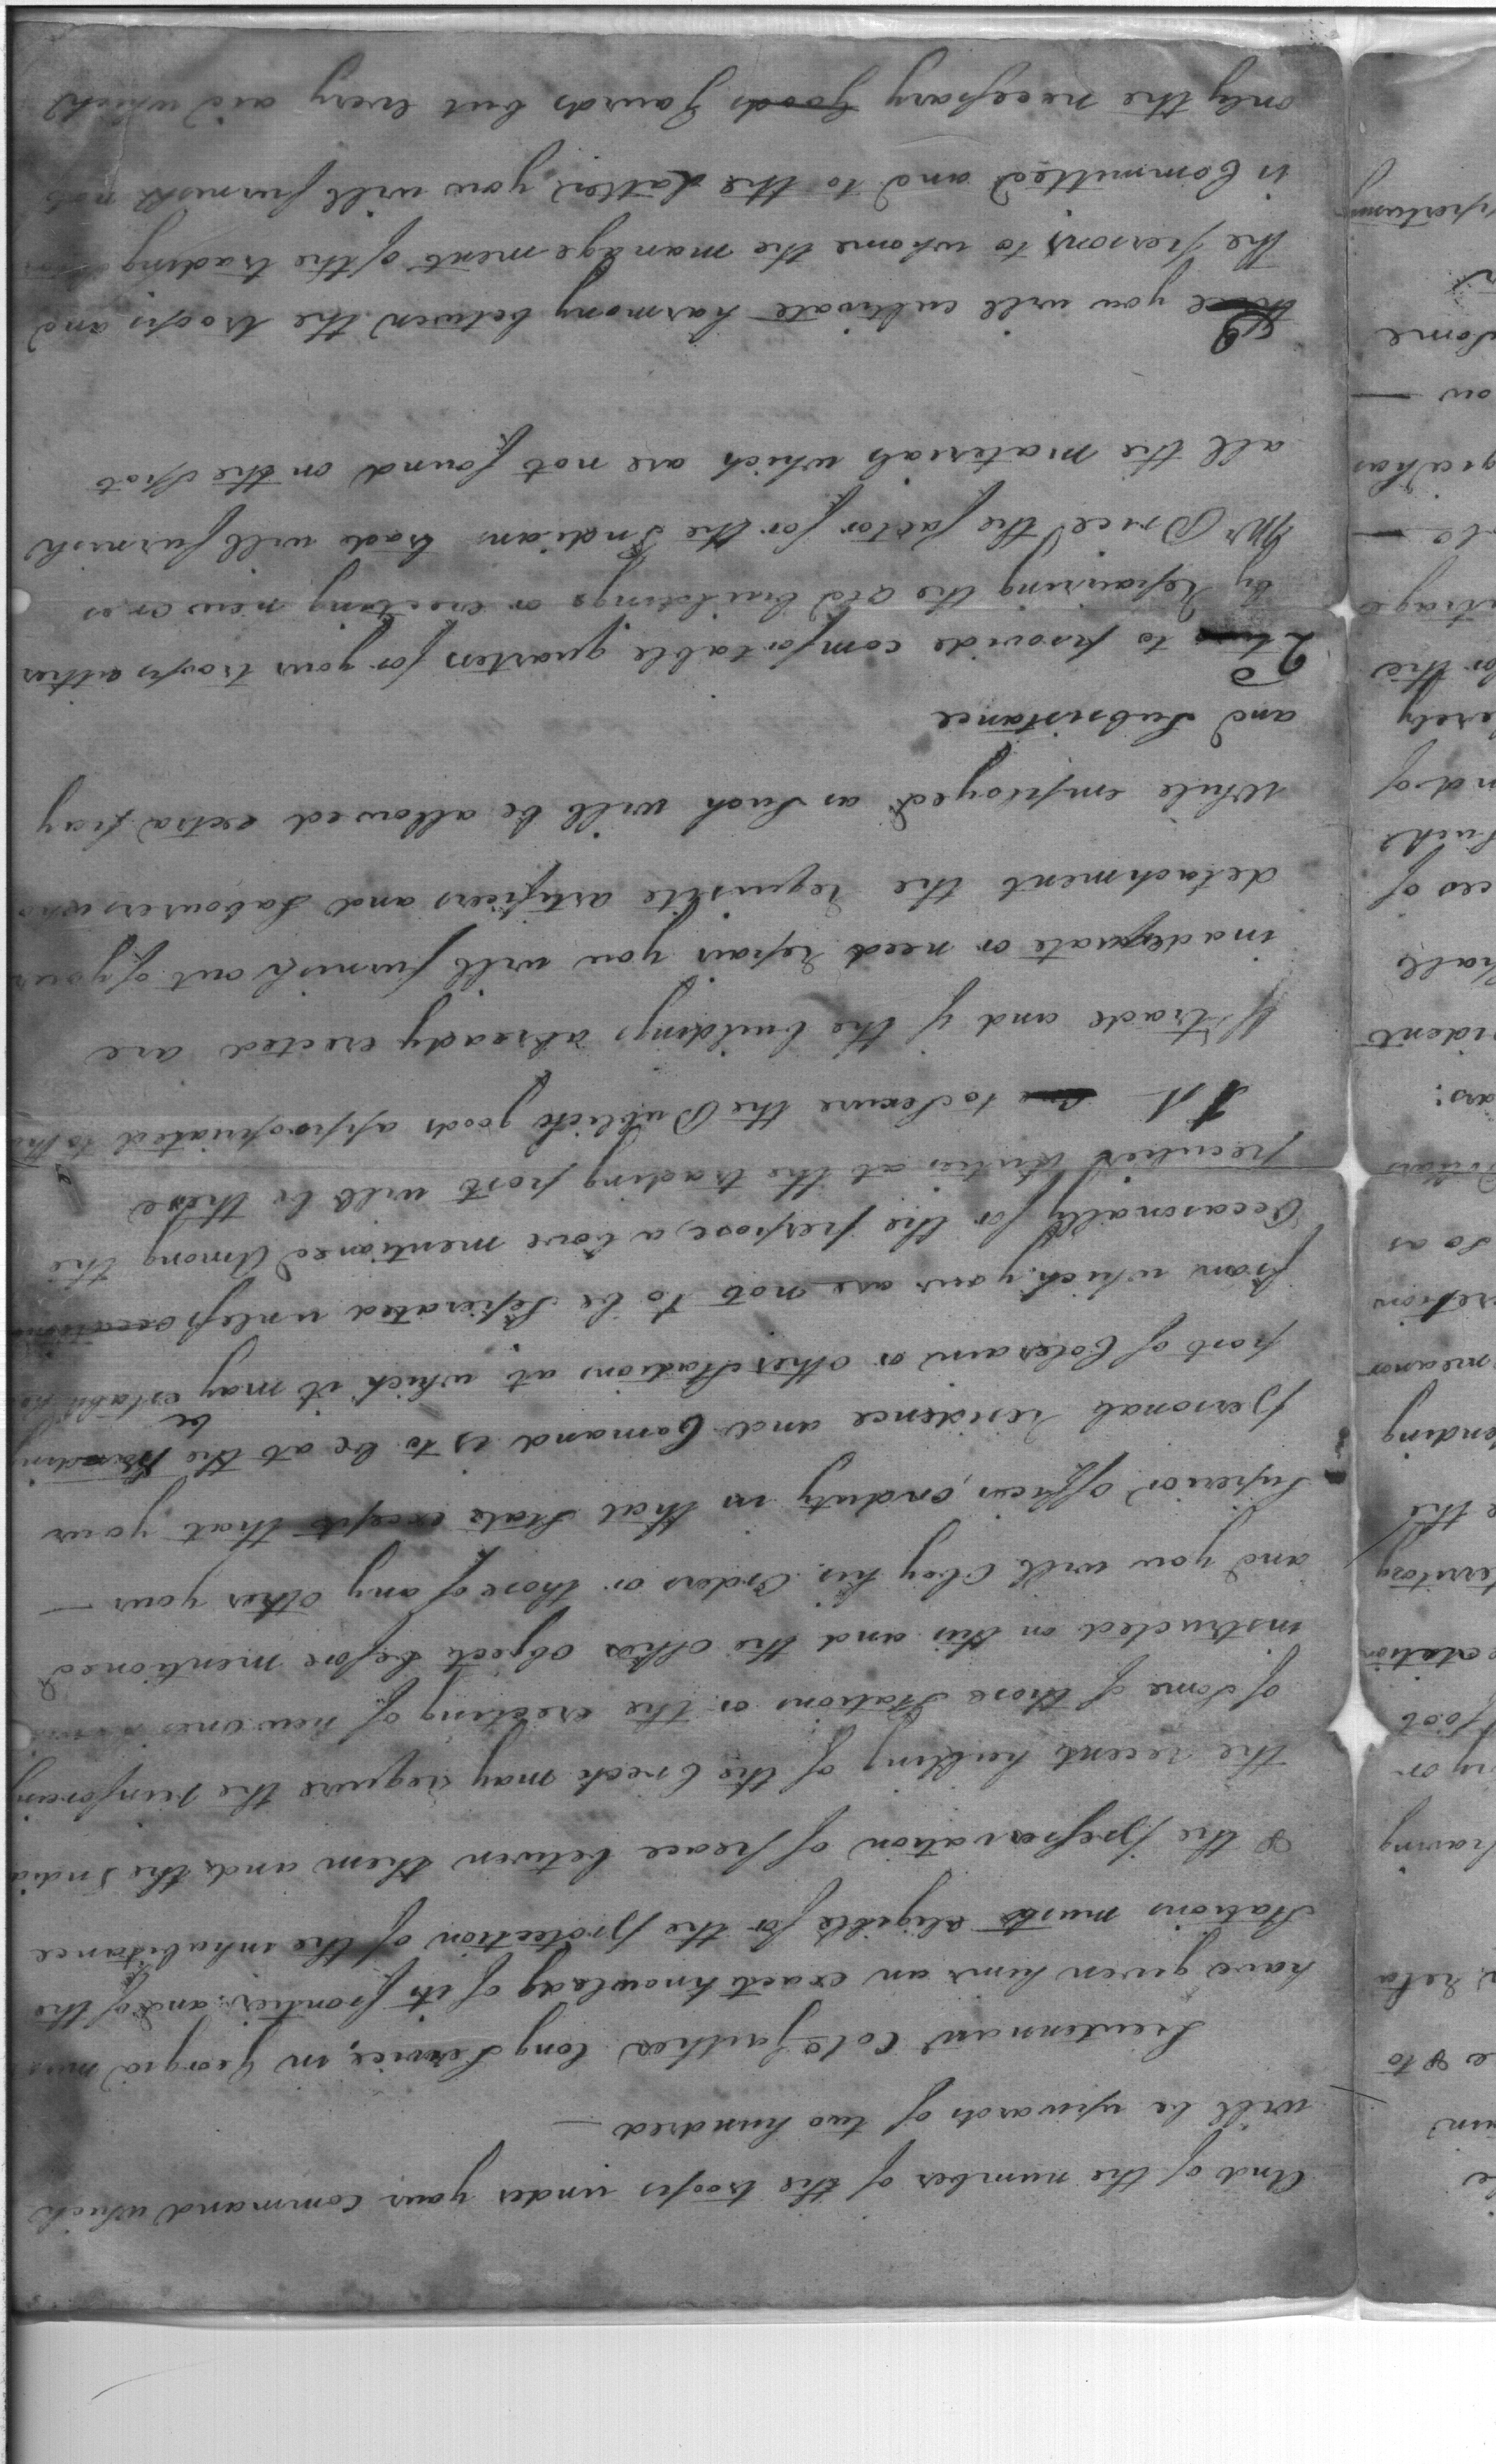 And of the number of the troops under your command which
will be upwards of two hundred —
Lieutennant Colo Gaither long Service, in Georgia must
have given him an exact knowledg of its frontier and of the
Stations must eligible for the protection of the inhabitance
& the preservation of peace between them and the India
the recent hutting of the Creek may require the reinforcing
of Some of those Stations or the erecting of new ones
instructed on this and the other object before mentioned
and you will Obey his Orders or those of any other your —
Superior officer, on duty in that State except that your
personal residence and Comand is to be at the trading
be
post of Colerain or other Stations at which it may establishe
from which your are not to be Seperated unless occations
Occasonally for the perpose above mentioned Among the
peculier duties at the trading post will be these
1st to Secure the Publick goods appropriated to the
of trade and if the buildings already erected are
inadequate or need repair you will furnish out of your
detachment the requisite artificers and Labourers who
while employed as Such will be allowed extra pay
and Subsistance
2 to provide comfortable quarters for your troops either
by repairing the old buildings or erecting new ones
Mr Price the factor for the Indians trade will furnish
all the materials which are not found on the Spot
you will cultivate harmony between the troops and
the persons to whome the management of the trading
is Committed and to the Latter you will furnish not
only the necessary goods gaurds but every aid which
pertaining
Some
ow —
gia has
ntrage
for the
erely
nd of
Such
ces of
hall
sident
ars:
Dollars
So as
retion
meanor
ending
e the
territory
foot
ny or
having
e & to